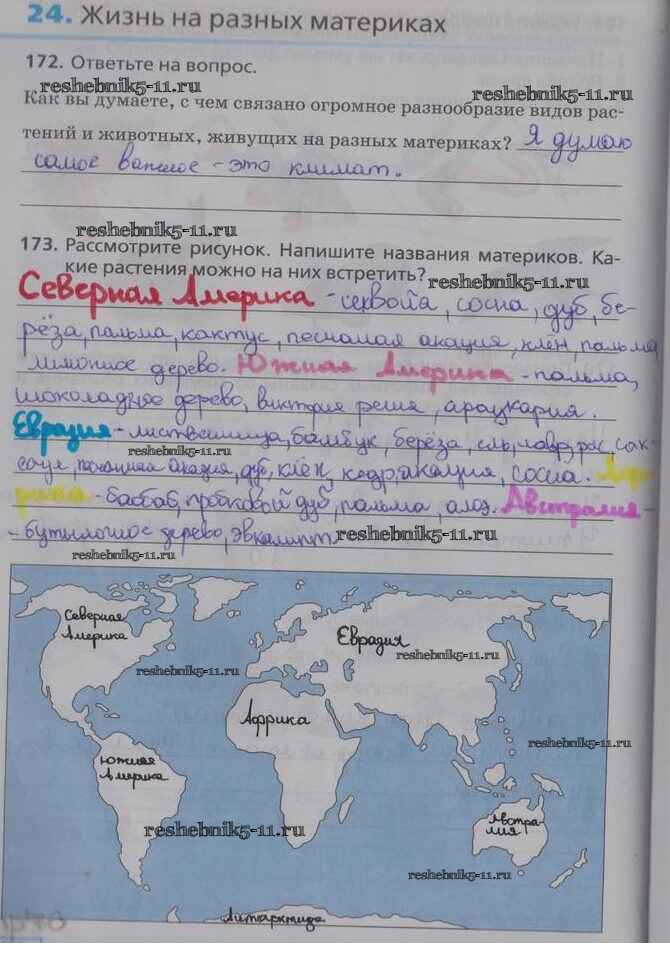 24. Жизнь на разных материках
172. Ответьте на вопрос.
reshebnik5-11.ru reshebnik5-11.ru
Как вы думаете, с чем связано огромное разнообразие видов рас-
тений и животных, живущих на разных материках? Я думаю
самое важное - это климат.
reshebnik5-11.ru
173. Рассмотрите рисунок. Напишите названия материков. Ка-
кие растения можно на них встретить? reshebnik5-11.ru
Северная Америка - секвойа, сосна, дуб, бе-
рёза, пальма, кактус, песчаная акация, клён, пальма
лимонное дерево. Южная Америка - пальма,
шоколадное дерево, виктория регия, араукария.
Евразия - лиственница, бамбук, берёза, ель, лавр, рис, сак-
reshebnik5-11.ru
саул, песчаная акация, дуб, клён, кедр, акация, сосна. Аф-
рика - баобаб, пробковой дуб, пальма, алоэ. Австралия -
- бутылочное дерево, эвкалипт. reshebnik5-11.ru
reshebnik5-11.ru
Северная
Америка
Евразия
reshebnik5-11.ru
reshebnik5-11.ru
Африка
reshebnik5-11.ru
Южная
Америка
Австра-
лия
reshebnik5-11.ru
reshebnik5-11.ru
Антарктида